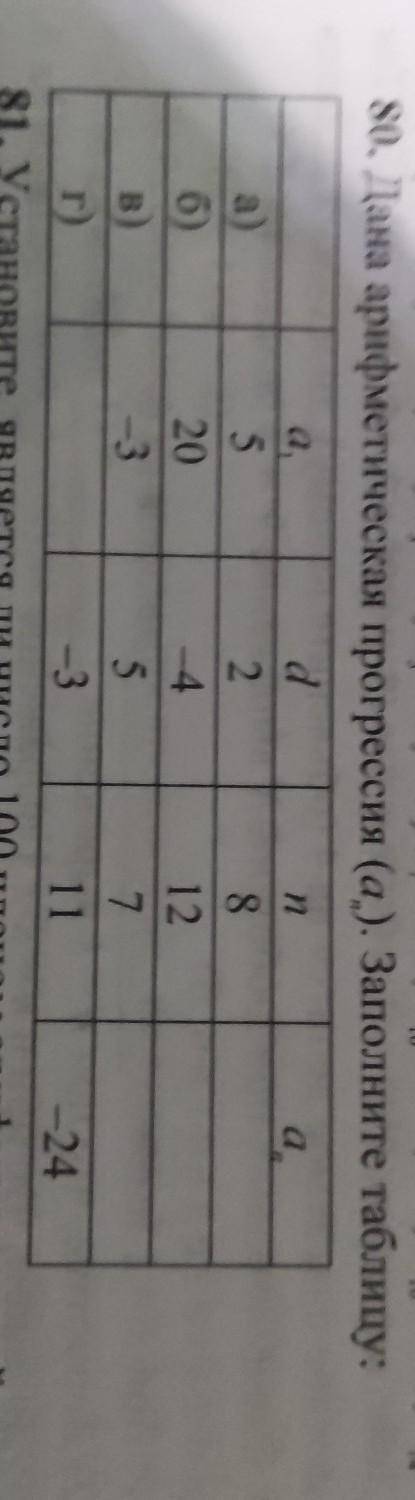 80. Дана арифметическая прогрессия (aₙ). Заполните таблицу:
a₁ d n aₙ
а) 5 2 8
б) 20 –4 12
в) –3 5 7
г) –3 11 –24
81. Установите является ли число 100